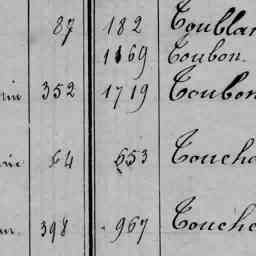 87 182 Toublan
1169 Toubon
352 1719 Toubon
64 653 Toucha
398 967 Touche